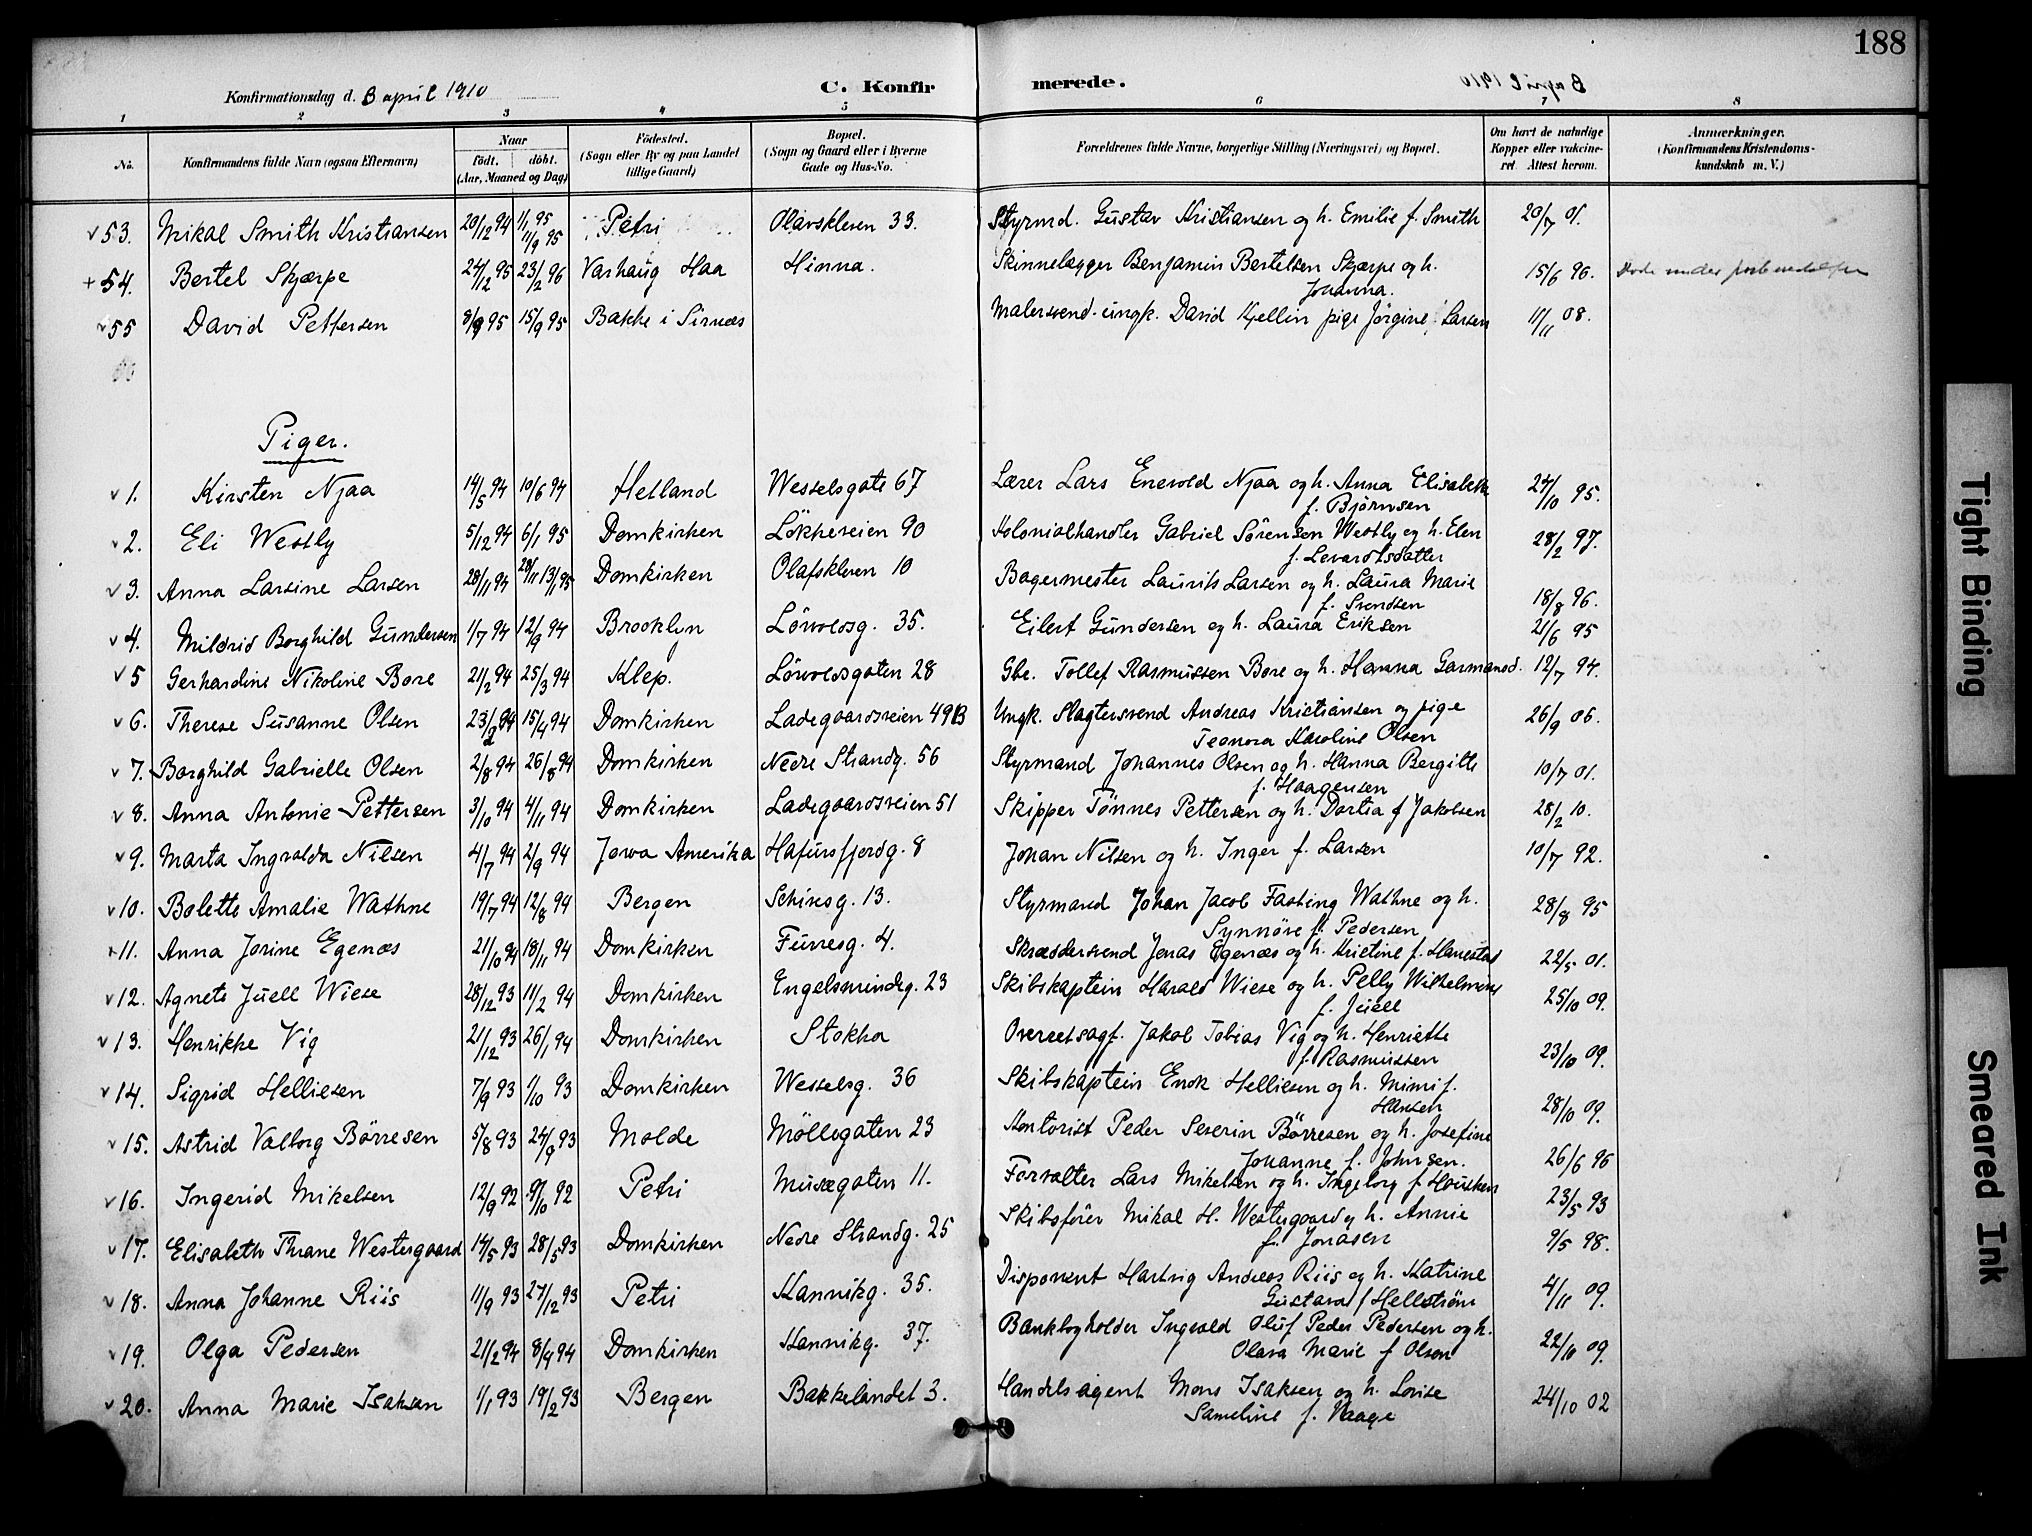 188
Konfirmationsdag d. 3 april 1910
C. Konfirmerede.
1 2 3 4 5 6 7 8
No. Konfirmandens fulde Navn (ogsaa Efternavn) Naar født. døbt. (Aar, Maaned og Dag) Fødested. (Sogn eller By og paa Landet tillige Gaard) Bopæl. (Sogn og Gaard eller i Byerne Gade og Hus-No. Forældrenes fulde Navne, borgerlige Stilling (Næringsvei) og Bopæl. Om havt de naturlige Kopper eller vakcineret. Attest herom. Anmærkninger. (Konfirmandens Kristendomskundskab m. V.)
v 53. Mikal Smith Kristiansen 20/12 94 1/1 95 11/9 95 Petri Olavskleven 33. Styrmd. Gustav Kristiansen og h. Emilie f. Smith 20/7 01.
+ 54. Bertel Skjærpe 24/12 95 23/2 96 Varhaug Haa Hinna. Skinnelægger Benjamin Bertelsen Skjærpe og h. 15/6 96. Døde under
Johanna.
v 55 David Pettersen 8/9 95 15/9 95 Bakke i Sirnes Malersvend ungk. David Kjellin pige Jörgine Larsen 11/11 08.
Piger.
v 1. Kirsten Njaa 14/5 94 10/6 94 Hetland Wesselsgate 67 Lærer Lars Enevold Njaa og h. Anna Elisabeth 24/10 95.
f. Bjørnsen
v 2. Eli Westly 5/12 94 6/1 95 Domkirken Lökkeveien 90 Kolonialhandler Gabriel Sørensen Westly og h. Elen 28/2 97.
f. Levardsdatter
v 3. Anna Larsine Larsen 28/11 94 13/1 95 Domkirken Olafskleven 10 Bagermester Laurits Larsen og h. Laura Marie
f. Svendsen 18/8 96.
v 4. Mildrid Borghild Gundersen 1/7 94 12/9 94 Brooklyn Lövvoldsg. 35. Eilert Gundersen og h. Laura Eriksen 21/6 95
v 5 Gerhardine Nikoline Bore 21/2 94 25/3 94 Klep. Lövvoldsgaten 28 Gbr. Tollef Rasmussen Bore og h. Hanna Garmansd. 12/7 94.
v 6. Therese Susanne Olsen 23/2 94 15/4 94 Domkirken Ladegaardsveien 49B Ungk. Slagtersvend Andreas Kristiansen og pige 26/9 06.
Teonora Karoline Olsen
v 7. Borghild Gabrielle Olsen 2/8 94 26/8 94 Domkirken Nedre Strandg. 56 Styrmand Johannes Olsen og h. Hanna Bergitte 10/7 01.
f. Haagensen
v 8. Anna Antonie Pettersen 3/10 94 4/11 94 Domkirken Ladegaardsveien 51 Skipper Tönnes Pettersen og h. Dortia f Jakobsen 28/2 10.
v 9. Marta Ingvalda Nilsen 4/7 94 2/9 94 Jowa Amerika Hafursfjordg. 8 Johan Nilsen og h. Inger f. Larsen 10/7 92.
v 10. Bolette Amalie Wathne 19/7 94 12/8 94 Bergen Schivesg. 13. Styrmand Johan Jacob Fasting Wathne og h. 28/8 95
Synnöve f. Pedersen
+ 11. Anna Jorine Egenæs 21/10 94 18/11 94 Domkirken Furresg. 4. Skræddersvend Jonas Egenæs og h. Kristine f. Hanestad 22/5 01.
v 12. Agnete Juell Wiese 28/12 93 11/2 94 Domkirken Engelsmindeg. 23 Skibskaptein Harald Wiese og h. Pelly Wilhelmine 25/10 09.
f. Juell
v 13. Henrikke Vig 21/12 93 26/1 94 Domkirken Stokka Overretsagf. Jakob Tobias Vig og h. Henriette
f. Rasmussen 23/10 09.
v 14. Sigrid Helliesen 7/9 93 1/10 93 Domkirken Wesselsg. 36 Skibskaptein Enok Helliesen og h. Mimi f.
Hansen 28/10 09.
v 15. Astrid Valborg Börresen 5/8 93 24/9 93 Molde Möllegaten 23 Kontorist Peder Severin Börresen og h. Josefine
Johanne f. Johnsen. 26/6 96
v 16. Ingerid Mikelsen 12/9 92 9/10 92 Petri Musegaten 11. Forvalter Lars Mikelsen og h. Ingeborg f Housken 23/5 93
v 17. Elisabeth Thrane Westergaard 14/5 93 28/5 93 Domkirken Nedre Strandg. 25 Skibsfører Mikal H. Westergaard og h. Annie
f. Jonasen 9/5 98.
v 18. Anna Johanne Riis 11/9 93 27/12 93 Petri Kannikg. 35. Disponent Hartvig Andreas Riis og h. Katrine 4/11 09.
Gustava f Hellström
v 19. Olga Pedersen 21/2 94 8/4 94 Domkirken Kannikg. 37. Bankbogholder Ingvald Oluf Peder Pedersen og h.
Olava Marie f Olsen 22/10 09.
v 20. Anna Marie Isaksen 1/1 93 19/2 93 Bergen Bakkelandet 3. Handelsagent Mons Isaksen og h. Lovise 24/10 02
Sameline f. Vaage
Tight Binding
Smeared Ink